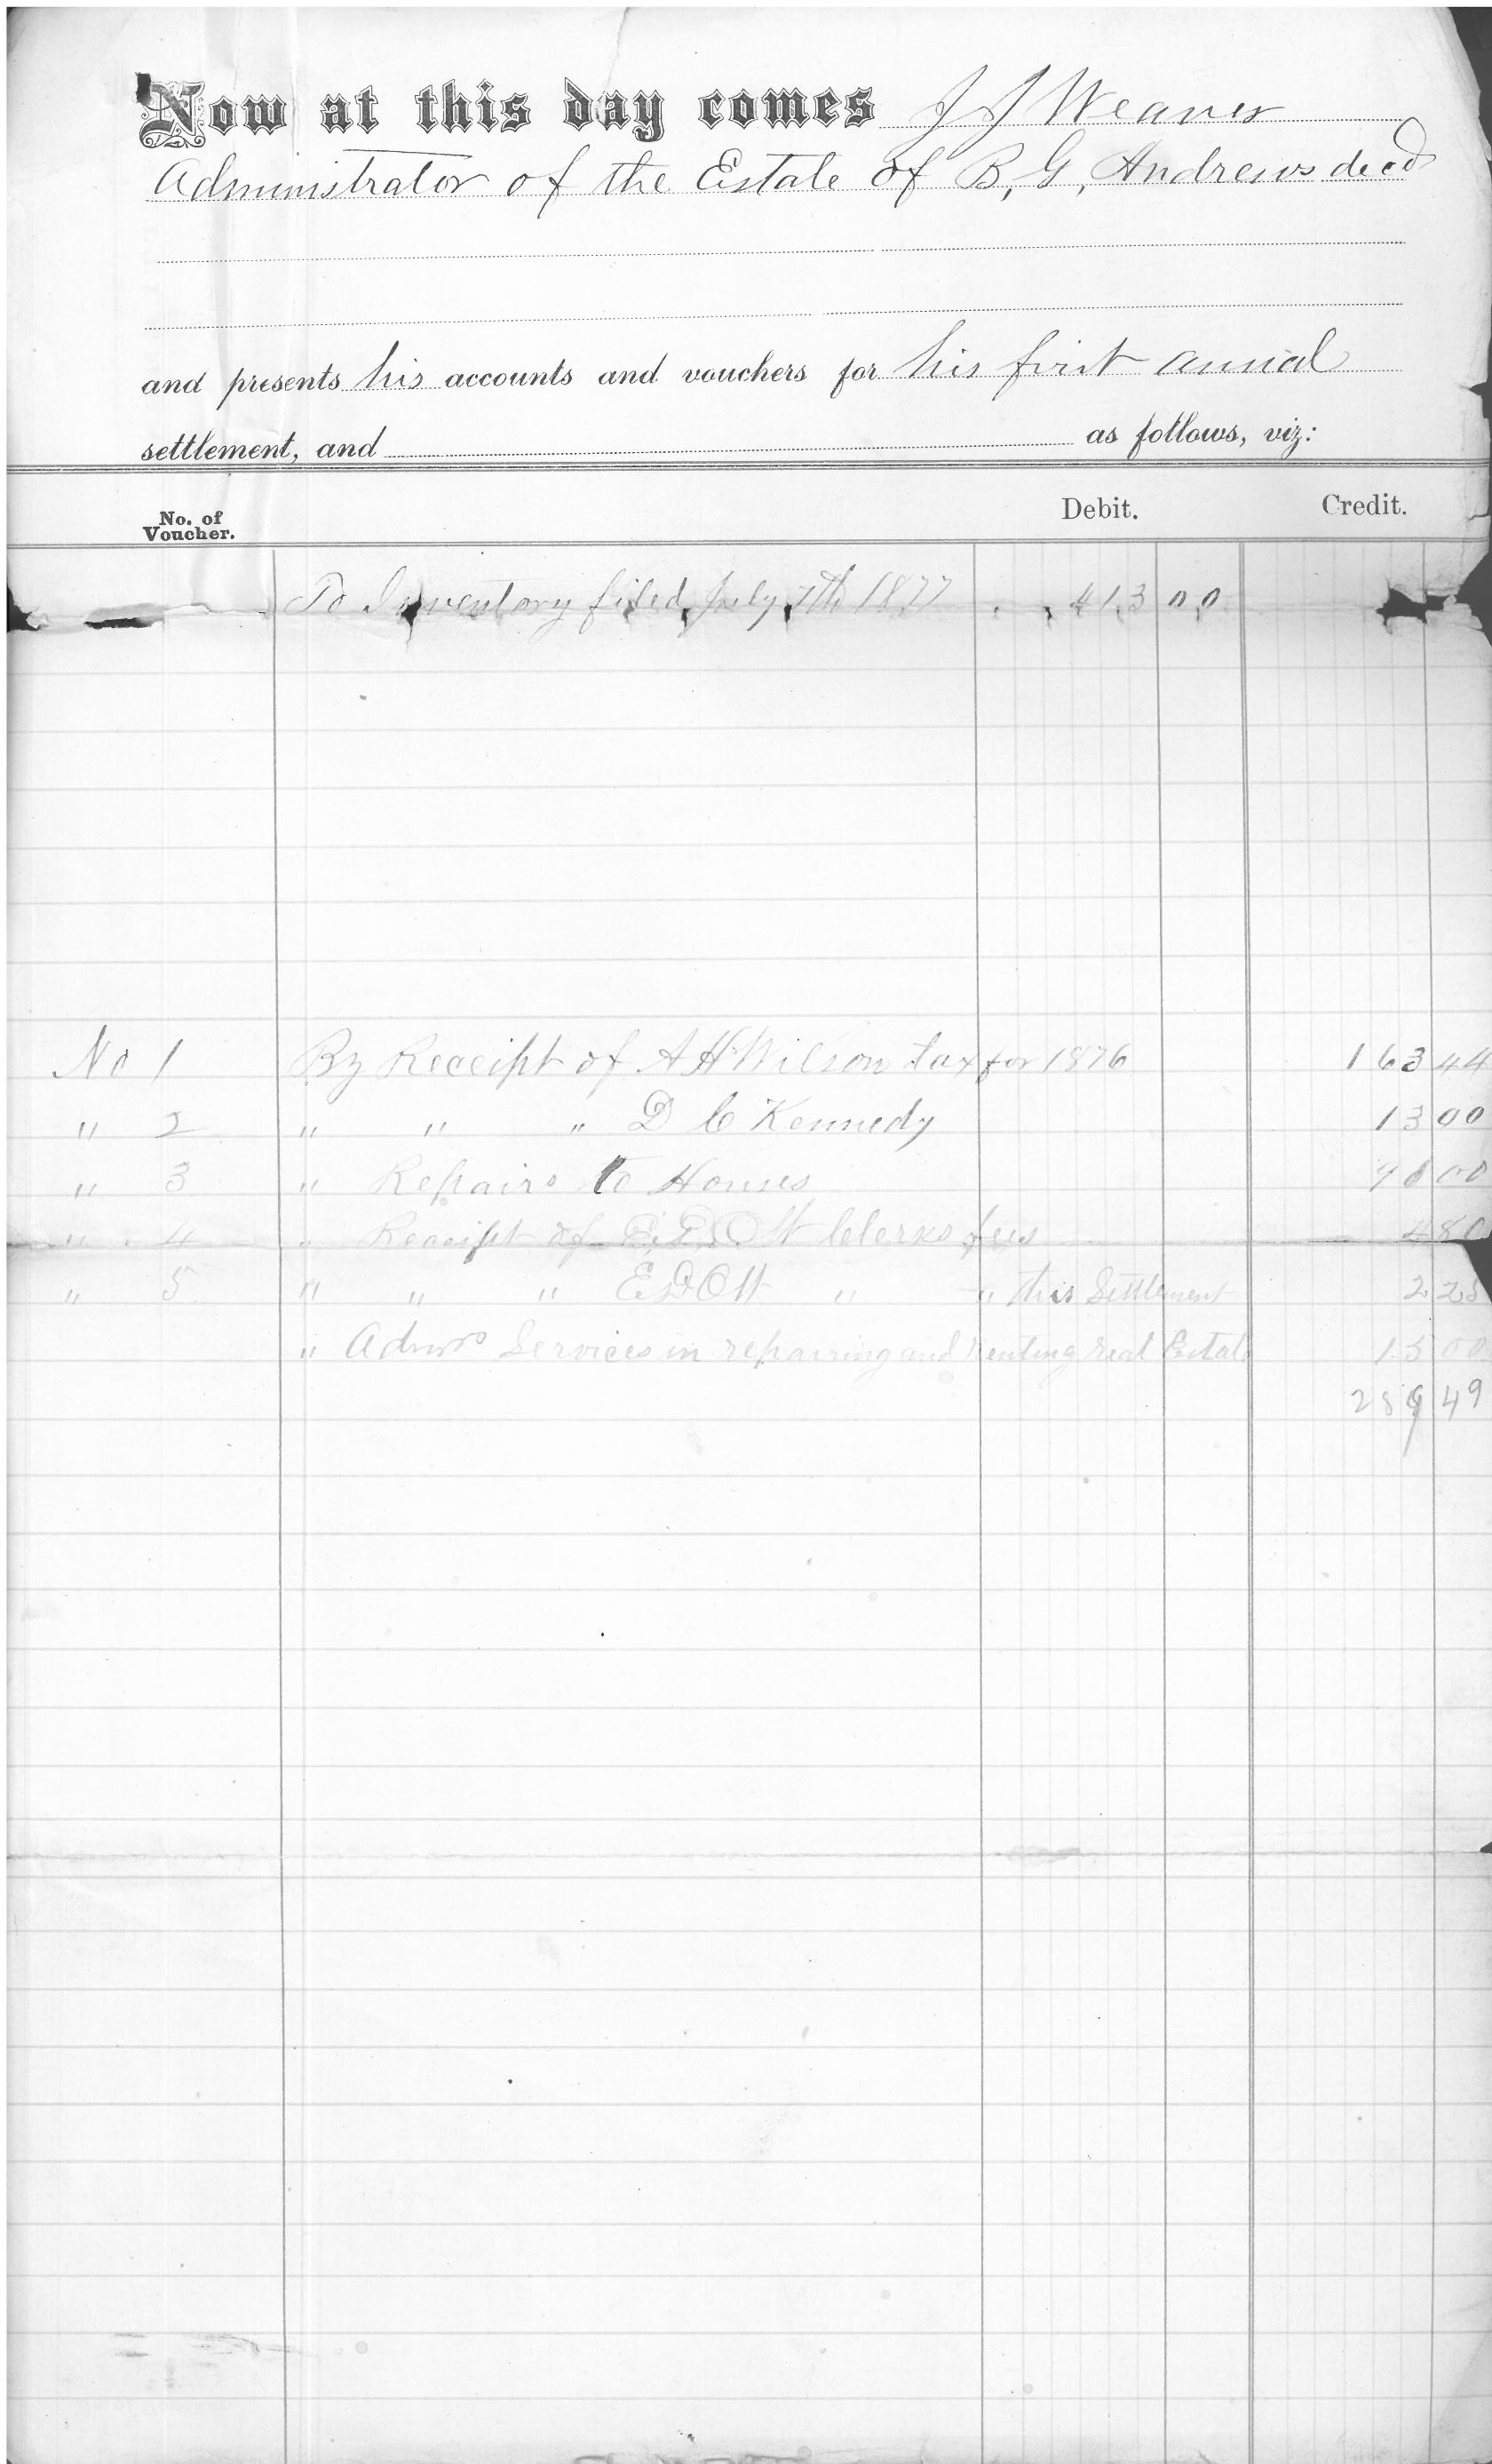 Now at this day comes J J Weaver
Administrator of the Estate of B, G, Andrews decd
and presents his accounts and vouchers for his first annual
settlement, and as follows, viz:
No. of Voucher. Debit. Credit.
To Inventory filed July 7th 1877 413 00
No 1 By Receipt of A H Wilson tax for 1876 163 44
" 2 " " " D C Kennedy 13 00
" 3 " Repairs to Houses
" 4 " Receipt of E, D, Ott Clerks fees 4 80
" 5 " " " E D Ott " " this Settlement 2 25
" Admrs Services in repairing and renting real Estate 15 00
289 49